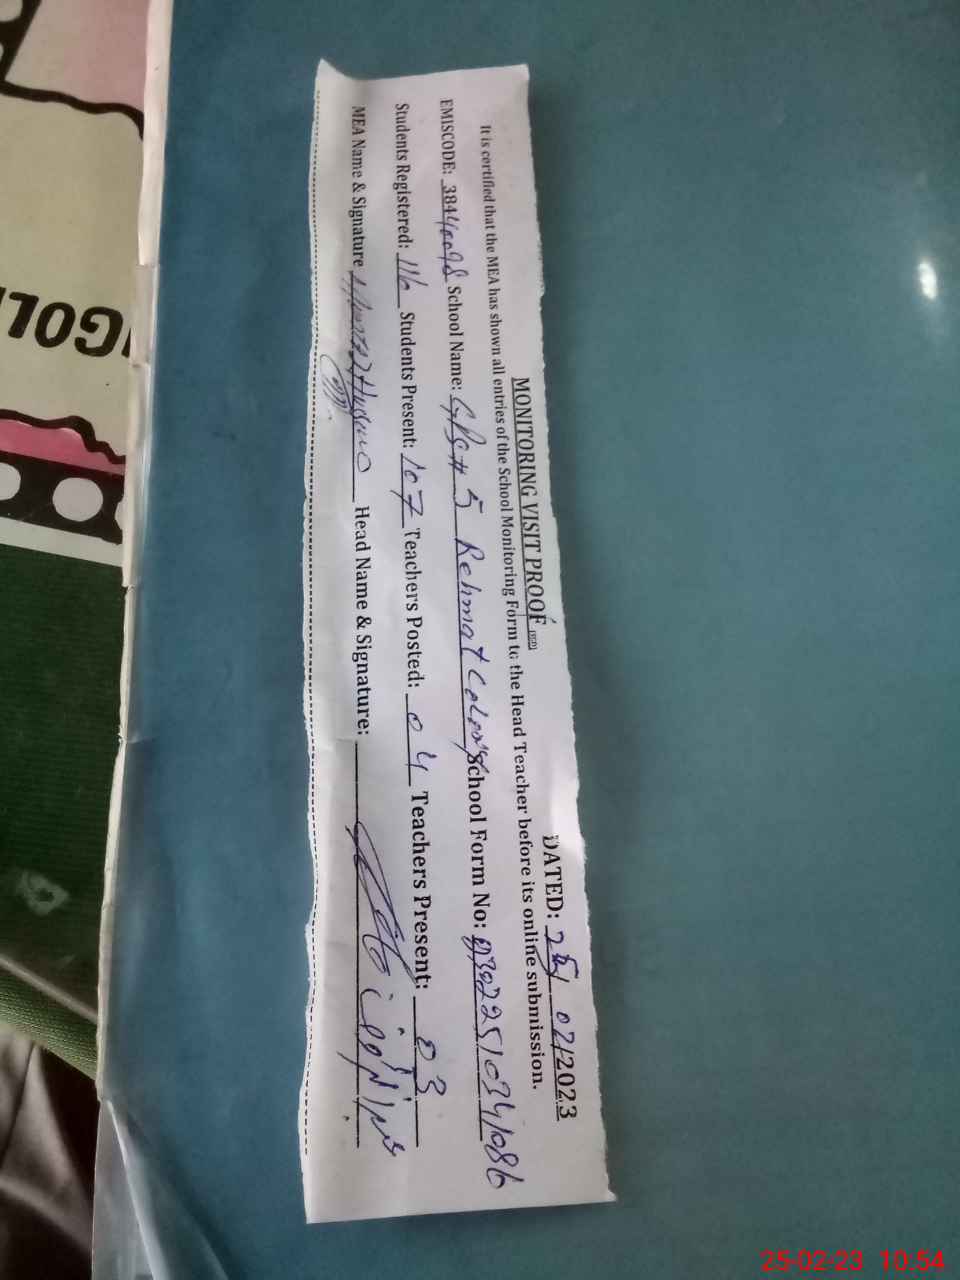 MONITORING VISIT PROOF
DATED: 25/02/2023
It is certified that the MEA has shown all entries of the School Monitoring Form to the Head Teacher before its online submission.
EMISCODE: 38440098 School Name: GPS # 5 Rehmat Colony School Form No:
Students Registered: 116 Students Present: 107 Teachers Posted: 04 Teachers Present: 03
MEA Name & Signature Head Name & Signature:
25-02-23 10:54